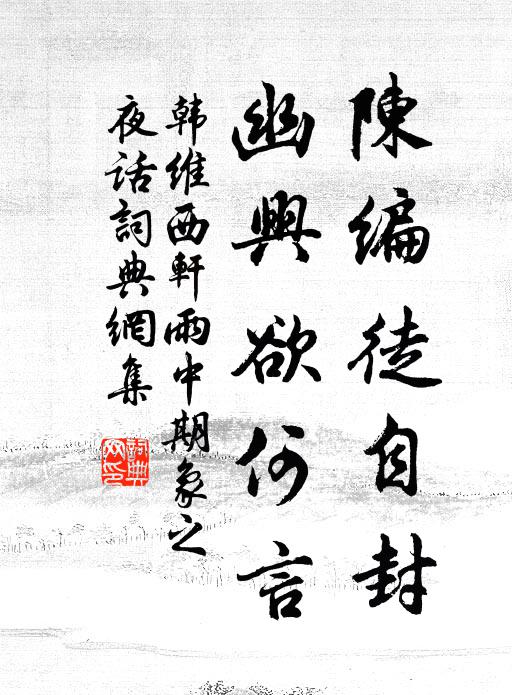 陳編徒自封
幽興欲何言
韩維西軒雨中期象之
夜話詞典網集
詞典网印